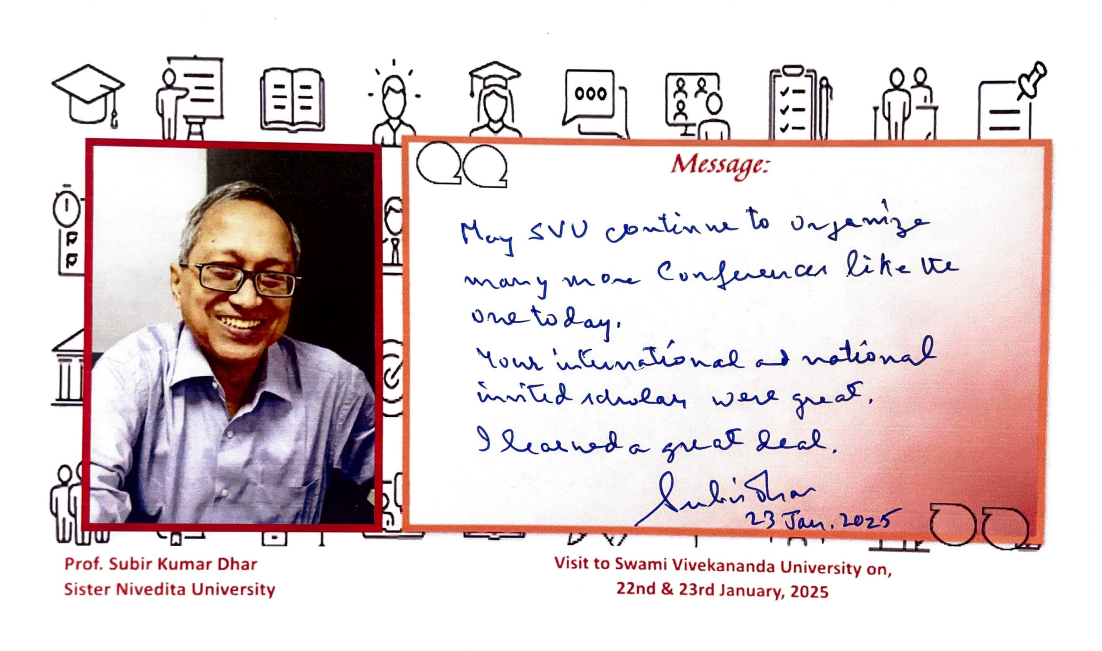 Message:
May SVU continue to organize
many more Conferences like the
one today.
Your international and national
invited scholars were great.
I learned a great deal.
Subir Dhar
23 Jan. 2025
Prof. Subir Kumar Dhar
Sister Nivedita University
Visit to Swami Vivekananda University on,
22nd & 23rd January, 2025